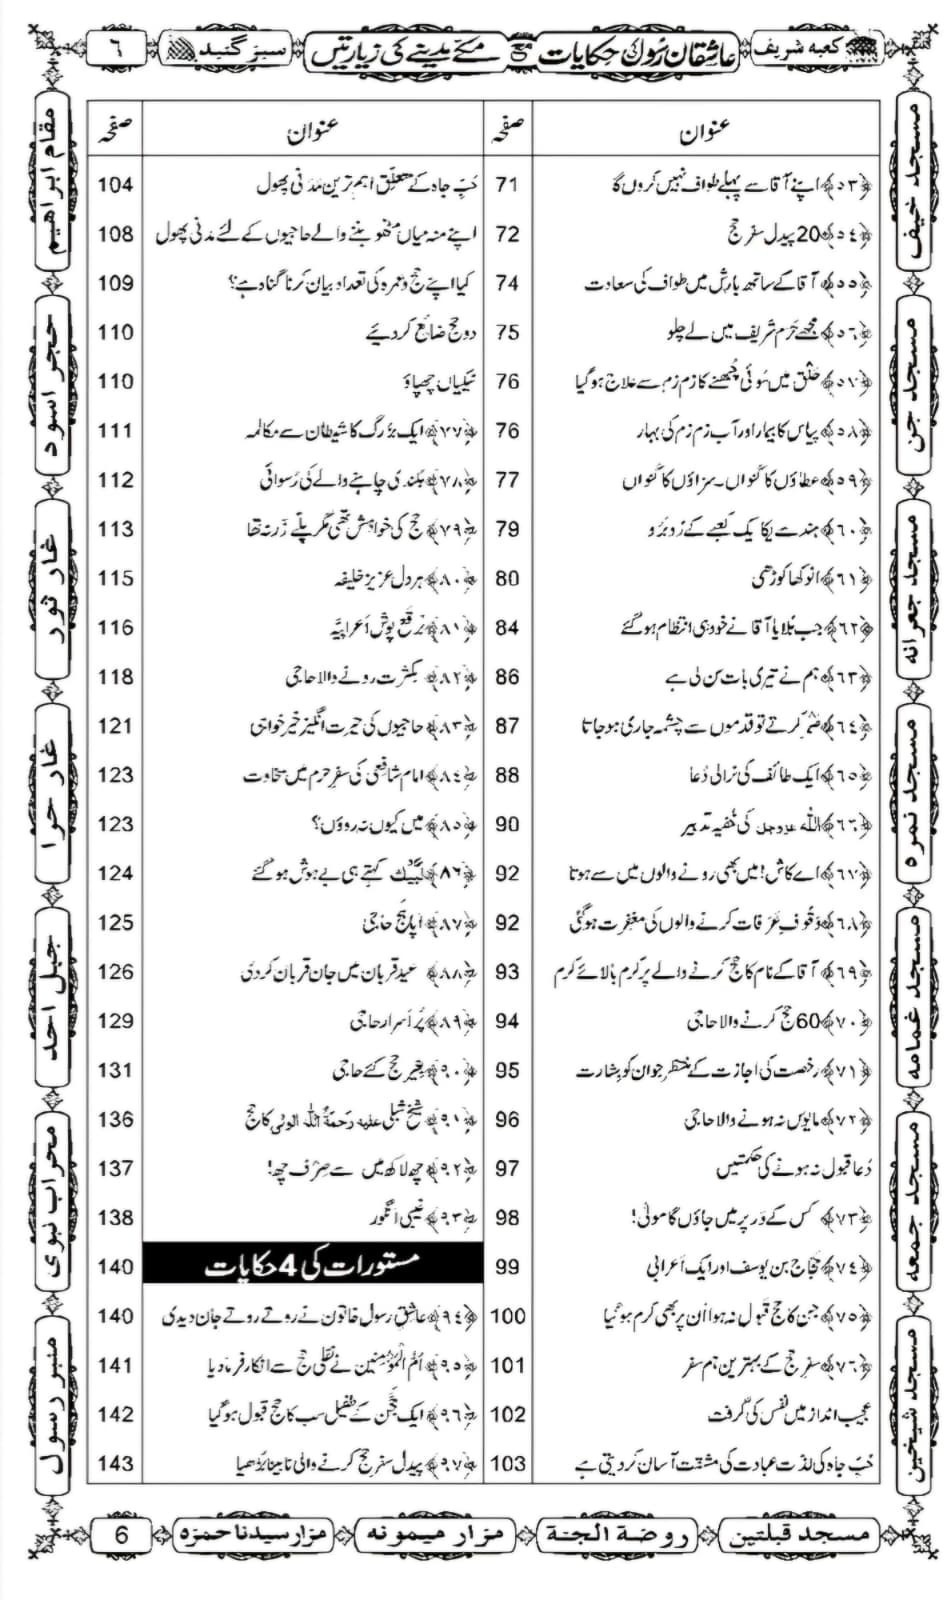 کعبہ شریف
عاشقانِ رسول کی حکایات مع مکے مدینے کی زیارتیں
سبز گنبد
٦
عنوان صفحہ عنوان صفحہ
﴿٥٣﴾ اپنے آقا سے پہلے طواف نہیں کروں گا 71
﴿٥٤﴾ 20 پیدل سفرِ حج 72
﴿٥٥﴾ آقا کے ساتھ بارش میں طواف کی سعادت 74
﴿٥٦﴾ مجھے حرم شریف میں لے چلو 75
﴿٥٧﴾ حلق میں سوئی چُبھنے کا زم زم سے علاج ہو گیا 76
﴿٥٨﴾ پیاس کا بیمار اور آبِ زم زم کی بہار 76
﴿٥٩﴾ عطاؤں کا کنواں۔ سزاؤں کا کنواں 77
﴿٦٠﴾ ہند سے یکایک کعبے کے رُو بَرُو 79
﴿٦١﴾ انوکھا کوڑھی 80
﴿٦٢﴾ جب بُلایا آقا نے خود ہی انتظام ہو گئے 84
﴿٦٣﴾ ہم نے تیری بات سن لی ہے 86
﴿٦٤﴾ کرتے تو قدموں سے چشمہ جاری ہو جاتا 87
﴿٦٥﴾ ایک طائف کی نرالی دُعا 88
﴿٦٦﴾ اللہ عزوجل کی خُفیہ تدبیر 90
﴿٦٧﴾ اے کاش! میں بھی رونے والوں میں سے ہوتا 92
﴿٦٨﴾ وُقوفِ عَرَفات کرنے والوں کی مغفرت ہو گئی 92
﴿٦٩﴾ آقا کے نام کا حج کرنے والے پر کرم بالائے کرم 93
﴿٧٠﴾ 60 حج کرنے والا حاجی 94
﴿٧١﴾ رخصت کی اجازت کے منتظر جوان کو بشارت 95
﴿٧٢﴾ مایوس نہ ہونے والا حاجی 96
دُعا قبول نہ ہونے کی حکمتیں 97
﴿٧٣﴾ کس کے در پر میں جاؤں گا مولیٰ! 98
﴿٧٤﴾ حجاج بن یوسف اور ایک اَعرابی 99
﴿٧٥﴾ جن کا حج قبول نہ ہوا ان پر بھی کرم ہو گیا 100
﴿٧٦﴾ سفرِ حج کے بہترین ہم سفر 101
عجیب انداز میں نفس کی گرفت 102
حُبِّ جاہ کی لذت عبادت کی مشقت آسان کر دیتی ہے 103
حُبِّ جاہ کے متعلق اہم ترین مَدَنی پھول 104
اپنے منہ میاں مٹھو بننے والے حاجیوں کے لئے مدنی پھول 108
کیا اپنے حج و عمرہ کی تعداد بیان کرنا گناہ ہے؟ 109
دو حج ضائع کر دیئے 110
نیکیاں چھپاؤ 110
﴿٧٧﴾ ایک بزرگ کا شیطان سے مکالمہ 111
﴿٧٨﴾ بلندی چاہنے والے کی رُسوائی 112
﴿٧٩﴾ حج کی خواہش تھی مگر پلّے زَر نہ تھا 113
﴿٨٠﴾ ہر دل عزیز خلیفہ 115
﴿٨١﴾ بُرقع پوش اَعرابیَّہ 116
﴿٨٢﴾ بکثرت رونے والا حاجی 118
﴿٨٣﴾ حاجیوں کی حیرت انگیز خیر خواہی 121
﴿٨٤﴾ امام شافعی کی سفرِ حرم میں سخاوت 123
﴿٨٥﴾ میں کیوں نہ روؤں؟ 123
﴿٨٦﴾ لَبَّیْک کہتے ہی بے ہوش ہو گئے 124
﴿٨٧﴾ اپاہج حاجی 125
﴿٨٨﴾ عیدِ قرباں میں جان قربان کر دی 126
﴿٨٩﴾ پُر اَسرار حاجی 129
﴿٩٠﴾ بغیر حج کئے حاجی 131
﴿٩١﴾ شیخ شبلی علیہ رحمۃ اللہ الولی کا حج 136
﴿٩٢﴾ چھ لاکھ میں سے صِرف چھ! 137
﴿٩٣﴾ غیبی انگور 138
مستورات کی 4 حکایات 140
﴿٩٤﴾ عاشقِ رسول خاتون نے روتے روتے جان دیدی 140
﴿٩٥﴾ اُمُّ الْمُؤمنین نے نفلی حج سے انکار فرما دیا 141
﴿٩٦﴾ ایک کے طفیل سب کا حج قبول ہو گیا 142
﴿٩٧﴾ پیدل سفرِ حج کرنے والی نابینا بُڑھیا 143
مسجد خیف
مسجد جن
مسجد جعرانہ
مسجد نمرہ
مسجد غمامہ
مسجد جمعہ
مسجد شیخین
مقام ابراھیم
حجر اسود
غار ثور
غار حرا
جبل احد
محراب نبوی
منبر رسول
مسجد قبلتین
روضة الجنة
مزار میمونہ
مزار سیدنا حمزہ
6